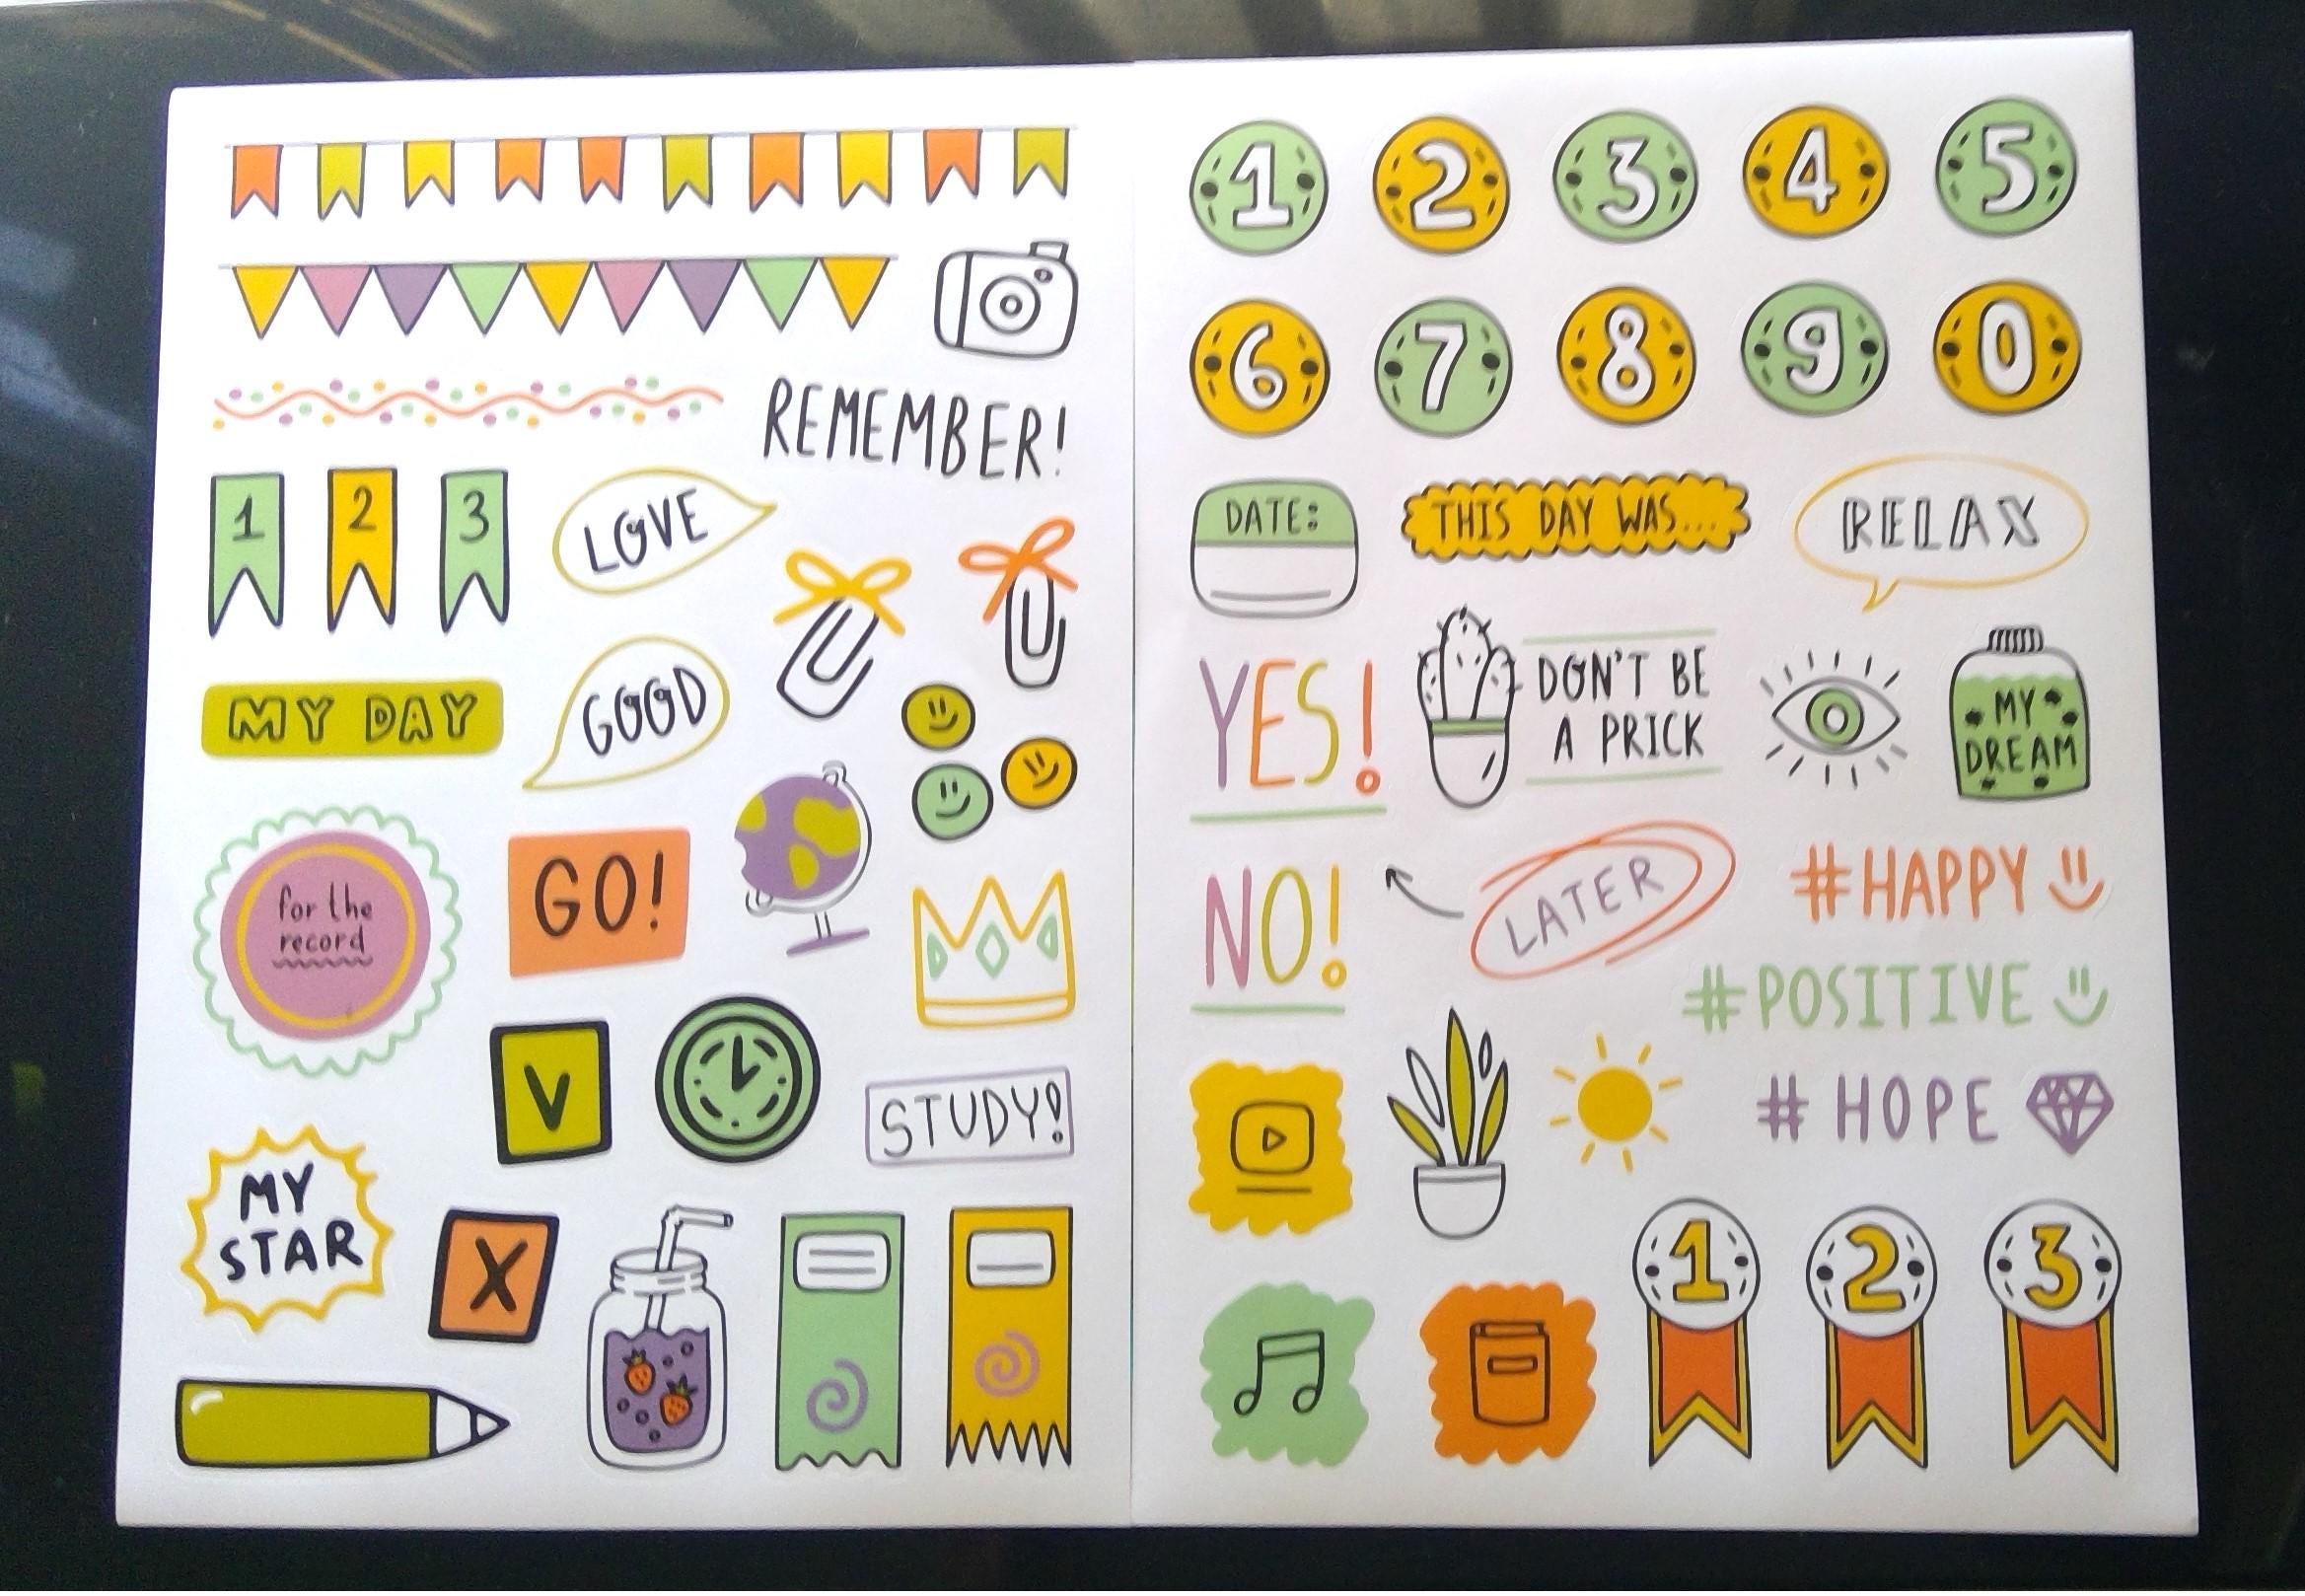 REMEMBER!
1 2 3
LOVE
MY DAY
GOOD
for the
record
GO!
V
STUDY!
MY
STAR
X
1 2 3 4 5
6 7 8 9 0
DATE:
THIS DAY WAS...
RELAX
YES!
DON'T BE
A PRICK
MY
DREAM
NO!
LATER
#HAPPY
#POSITIVE
# HOPE
1 2 3